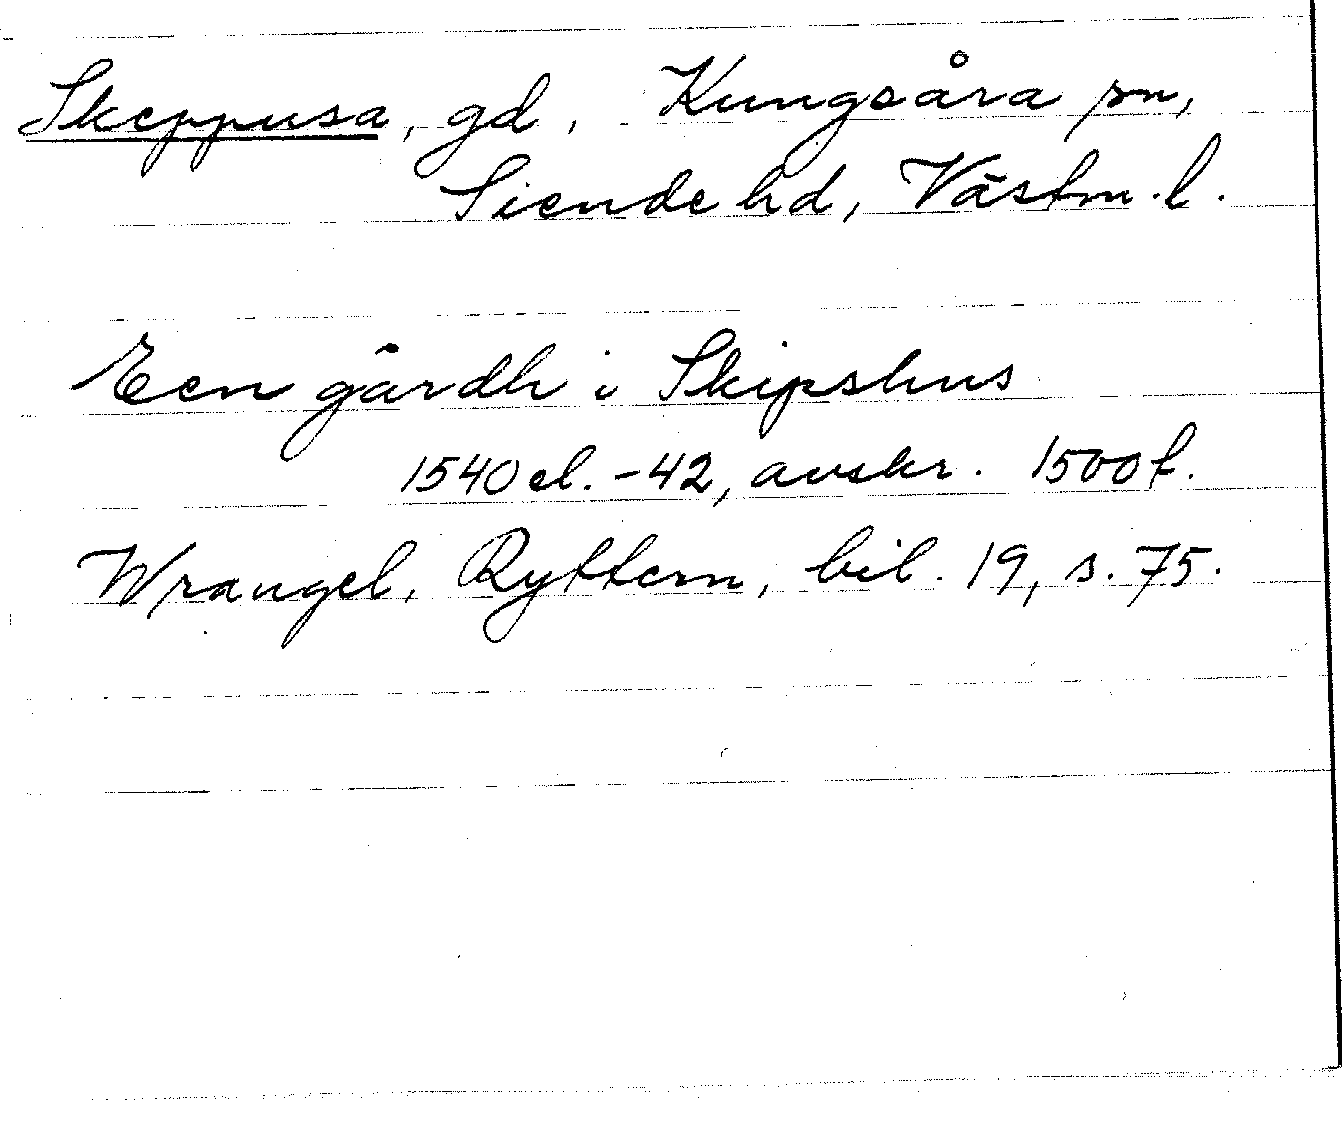 Skeppusa, gd, Kungsåra sn,
Siende hd, Västm. l.
Een gårdh i Skipshus
1540 el. -42, avskr. 1500 t.
Wrangel, Ryttern, bil. 19, s. 75.